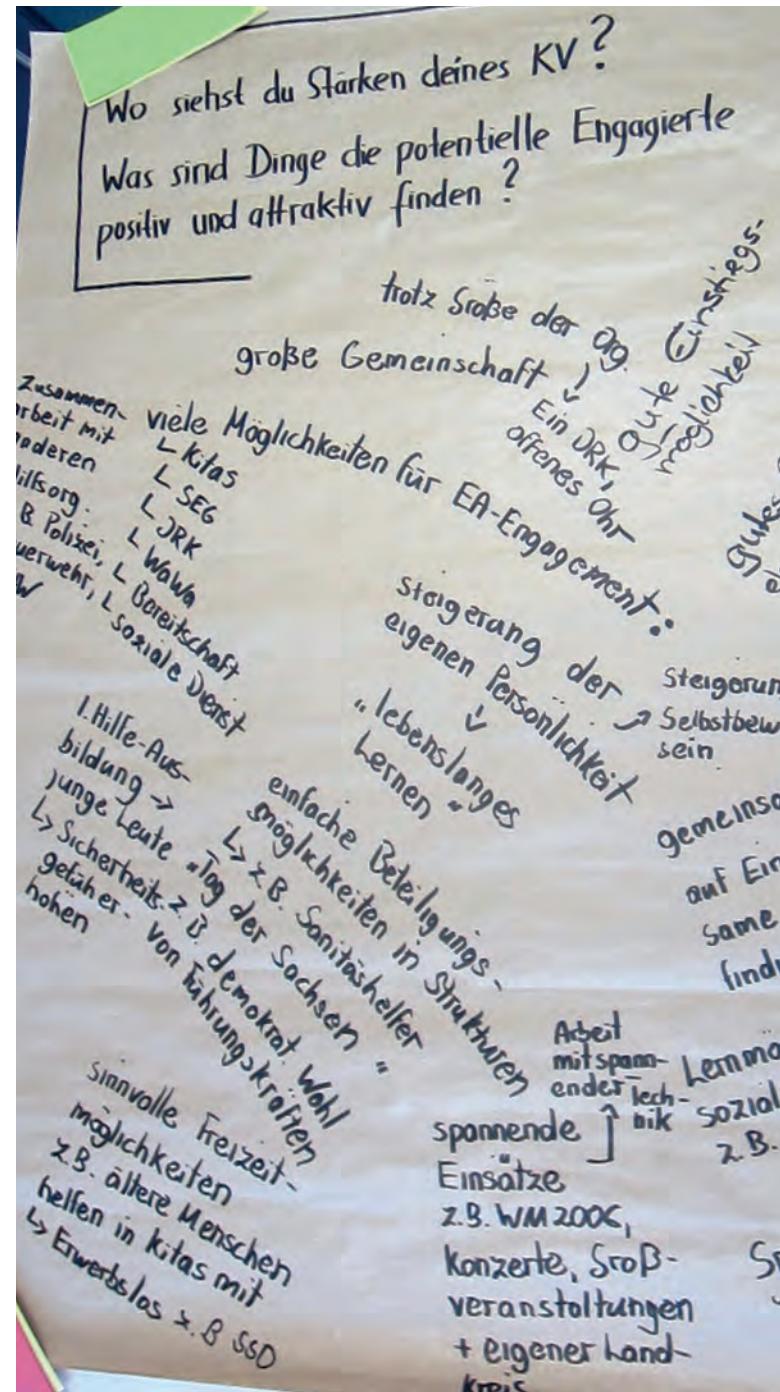 Wo siehst du Stärken deines KV?
Was sind Dinge die potentielle Engagierte
positiv und attraktiv finden?
trotz Größe der Org.
große Gemeinschaft
Ein JRK,
offenes Ohr
gute Einstiegs-
möglichkeit
gutes
Zusammen-
arbeit mit
anderen
Hilfsorg.
z. B. Polizei,
Feuerwehr,
viele Möglichkeiten für EA-Engagement:
↳ Kitas
↳ SEG
↳ JRK
↳ WaWa
↳ Bereitschaft
↳ soziale Dienst
Steigerung der
eigenen Persönlichkeit
"lebenslanges
Lernen"
Steigerun
Selbstbew
sein
1. Hilfe-Aus-
bildung →
junge Leute
↳ Sicherheits-
gefüher-
hohen
einfache Beteiligungs-
möglichkeiten in Strukturen
↳ z.B. Sanitäshelfer
"Tag der Sachsen"
z. B. demokrat. Wahl
von Führungskräften
gemeinsa
auf Ein
same
find
Arbeit
mit spann-
ender Tech-
nik
Lernmö
sozial
z.B.
spannende
Einsätze
z.B. WM 2006,
Konzerte, Groß-
veranstaltungen
+ eigener Land-
kreis
sinnvolle Freizeit-
möglichkeiten
z.B. ältere Menschen
helfen in Kitas mit
↳ Erwerbslos z.B SSD